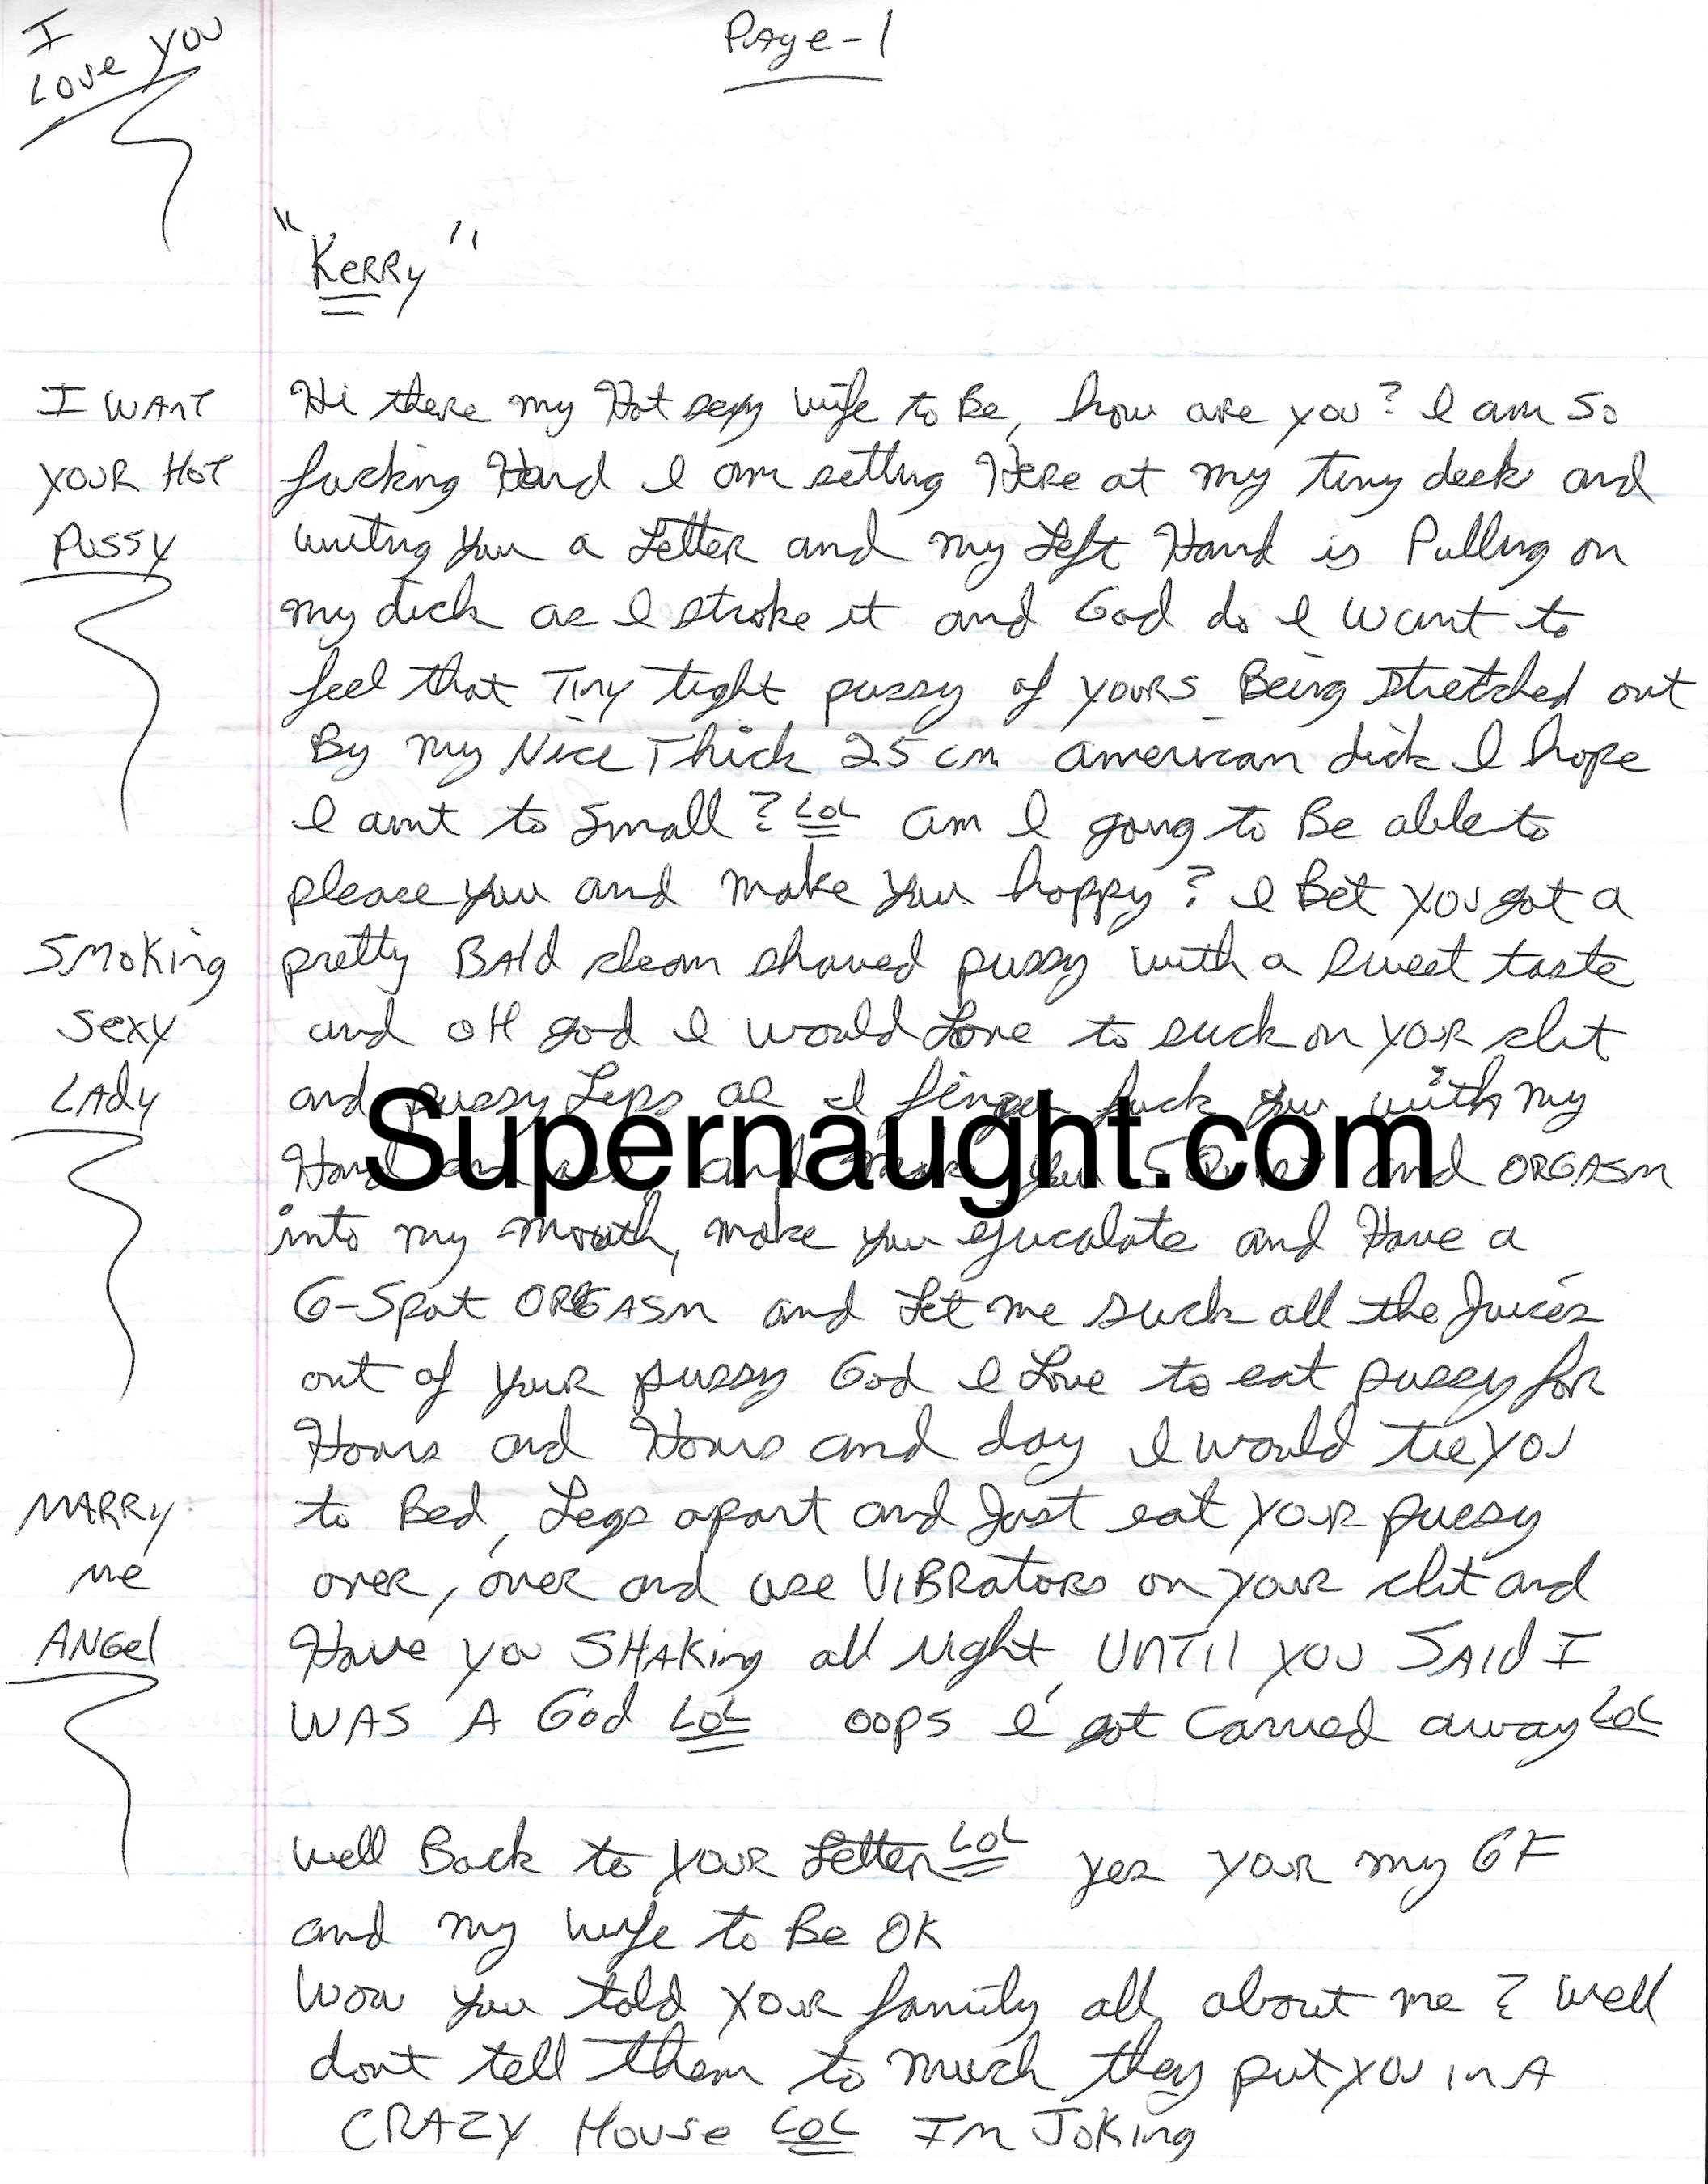 I
Love you
Page-1
"Kerry"
I WANT
YOUR HOT
PUSSY
Hi there my Hot sexy wife to Be, how are you? I am so
fucking Hard I am setting Here at my tiny desk and
writing you a Letter and my Left Hand is Pulling on
my dick as I stroke it and God do I want to
feel that Tiny tight pussy of yours Being Stretched out
By my Nice Thick 25 cm american dick I hope
I aint to small? LOL am I going to Be able to
please you and make you happy? I Bet you got a
SMOKing
Sexy
LAdy
pretty BAld clean shaved pussy with a sweet taste
and oH god I would Love to suck on your clit
and pussy Lips as I finger fuck you with my
Hand and make you and ORGASM
into my mouth, make you ejuculate and Have a
G-Spot ORGASM and Let me suck all the Juices
out of your pussy God I Love to eat pussy for
Hours and Hours and day I would tie you
MARRY
me
ANGel
to Bed, Legs apart and Just eat your pussy
over, over and use ViBRators on your clit and
Have you SHAKing all night UNTIl you SAId I
WAS A God LOL oops I got Carried away LOL
Well Back to your Letter LOL yes your my GF
and my wife to Be OK
Wow you told your family all about me? Well
dont tell them to much they put you in A
CRAZY House LOL Im JoKing
Supernaught.com